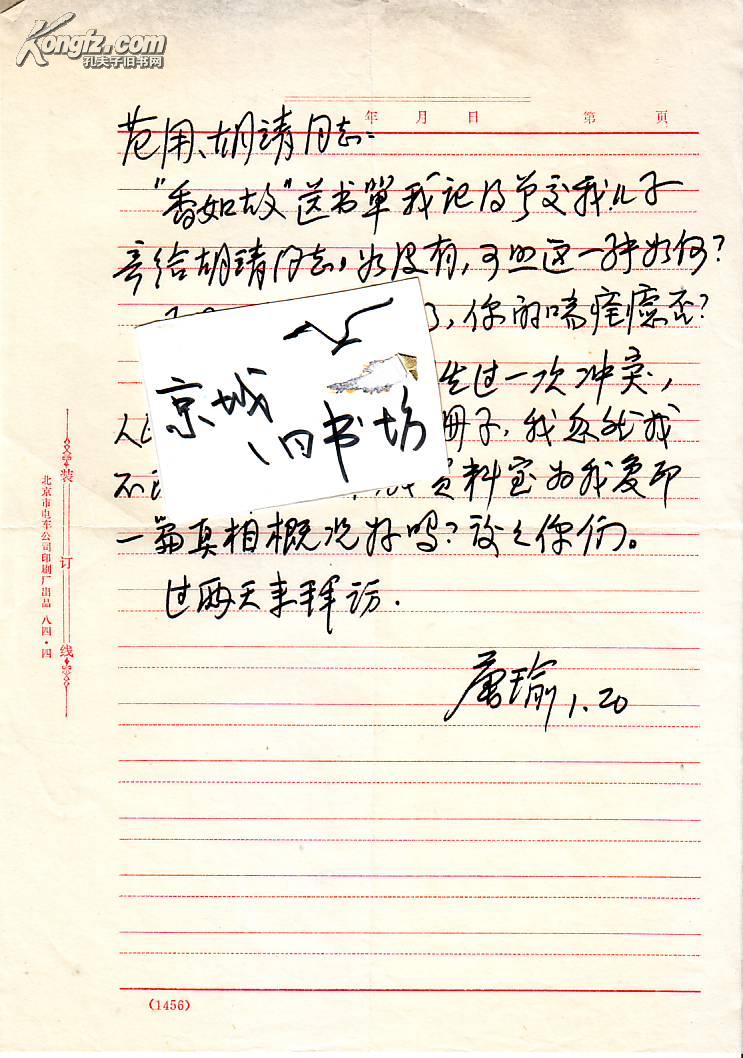 Kongfz.com
孔夫子旧书网
年 月 日 第 页
范用、胡靖同志：
"香如故"送书单我记得曾交我儿子
寄给胡靖同志，如没有，可照这一种如何？
，你的喘痊癒否？
生过一次冲突，
人 册子，我忽然找
不 资料室为我复印
一篇真相概况好吗？谢之你们。
过两天来拜访.
唐瑜 1.20
京城
旧书坊
装订线
北京市电车公司印刷厂出品 八四·四
(1456)